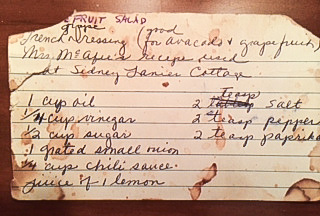 FRUIT SALAD
good
French Dressing (for avacado & grapefruit)
Mrs. McAfee's recipe used
at Sidney Lanier Cottage
teasp
1 cup oil 2 salt
1/4 cup vinegar 2 teasp pepper
1/2 cup sugar 2 teasp paprika
1 grated small onion
1/4 cup chili sauce
juice of 1 lemon